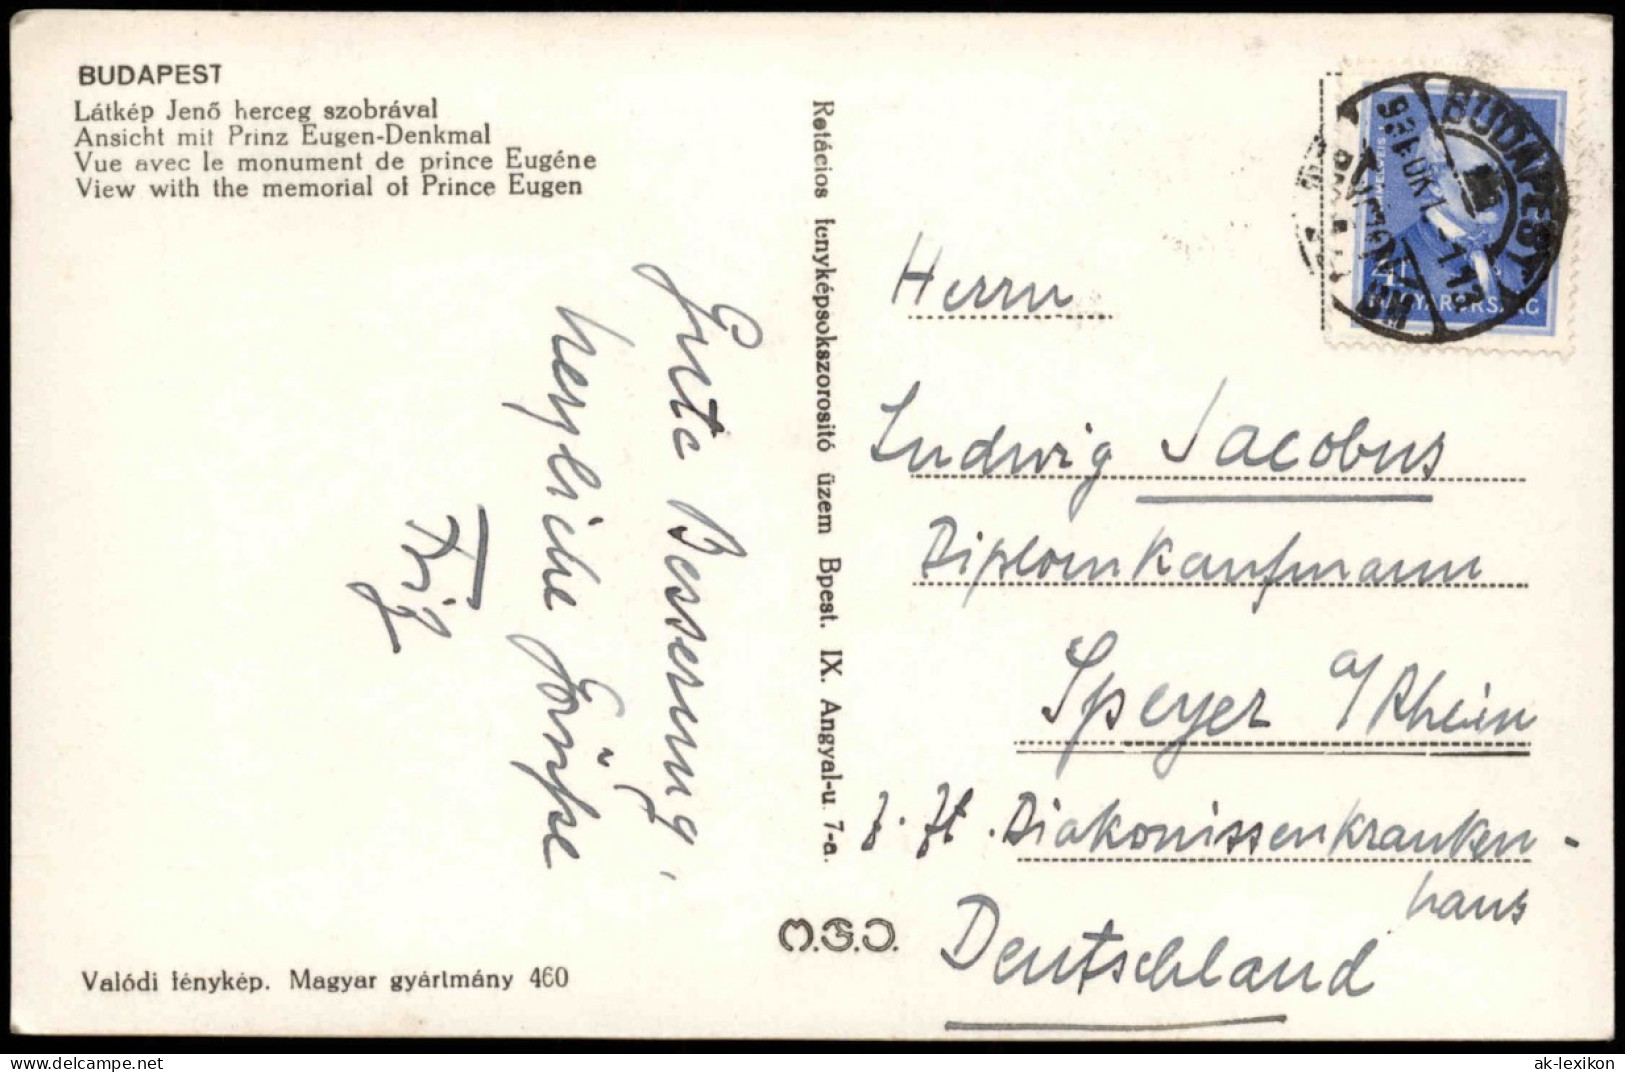 BUDAPEST
Látkép Jenő herceg szobrával
Ansicht mit Prinz Eugen-Denkmal
Vue avec le monument de prince Eugéne
View with the memorial of Prince Eugen
Gute Besserung,
herzliche Grüsse
Rotációs fényképsokszorosító üzem Bpest. IX. Angyal-u. 7-a.
BUDAPEST
MAGYARORSZÁG
Herrn
Ludwig Jacobus
Diplomkaufmann
Speyer a/Rhein
z. Zt. Diakonissenkranken-
haus
Deutschland
M.S.J.
Valódi fénykép. Magyar gyártmány 460
www.delcampe.net
ak-lexikon